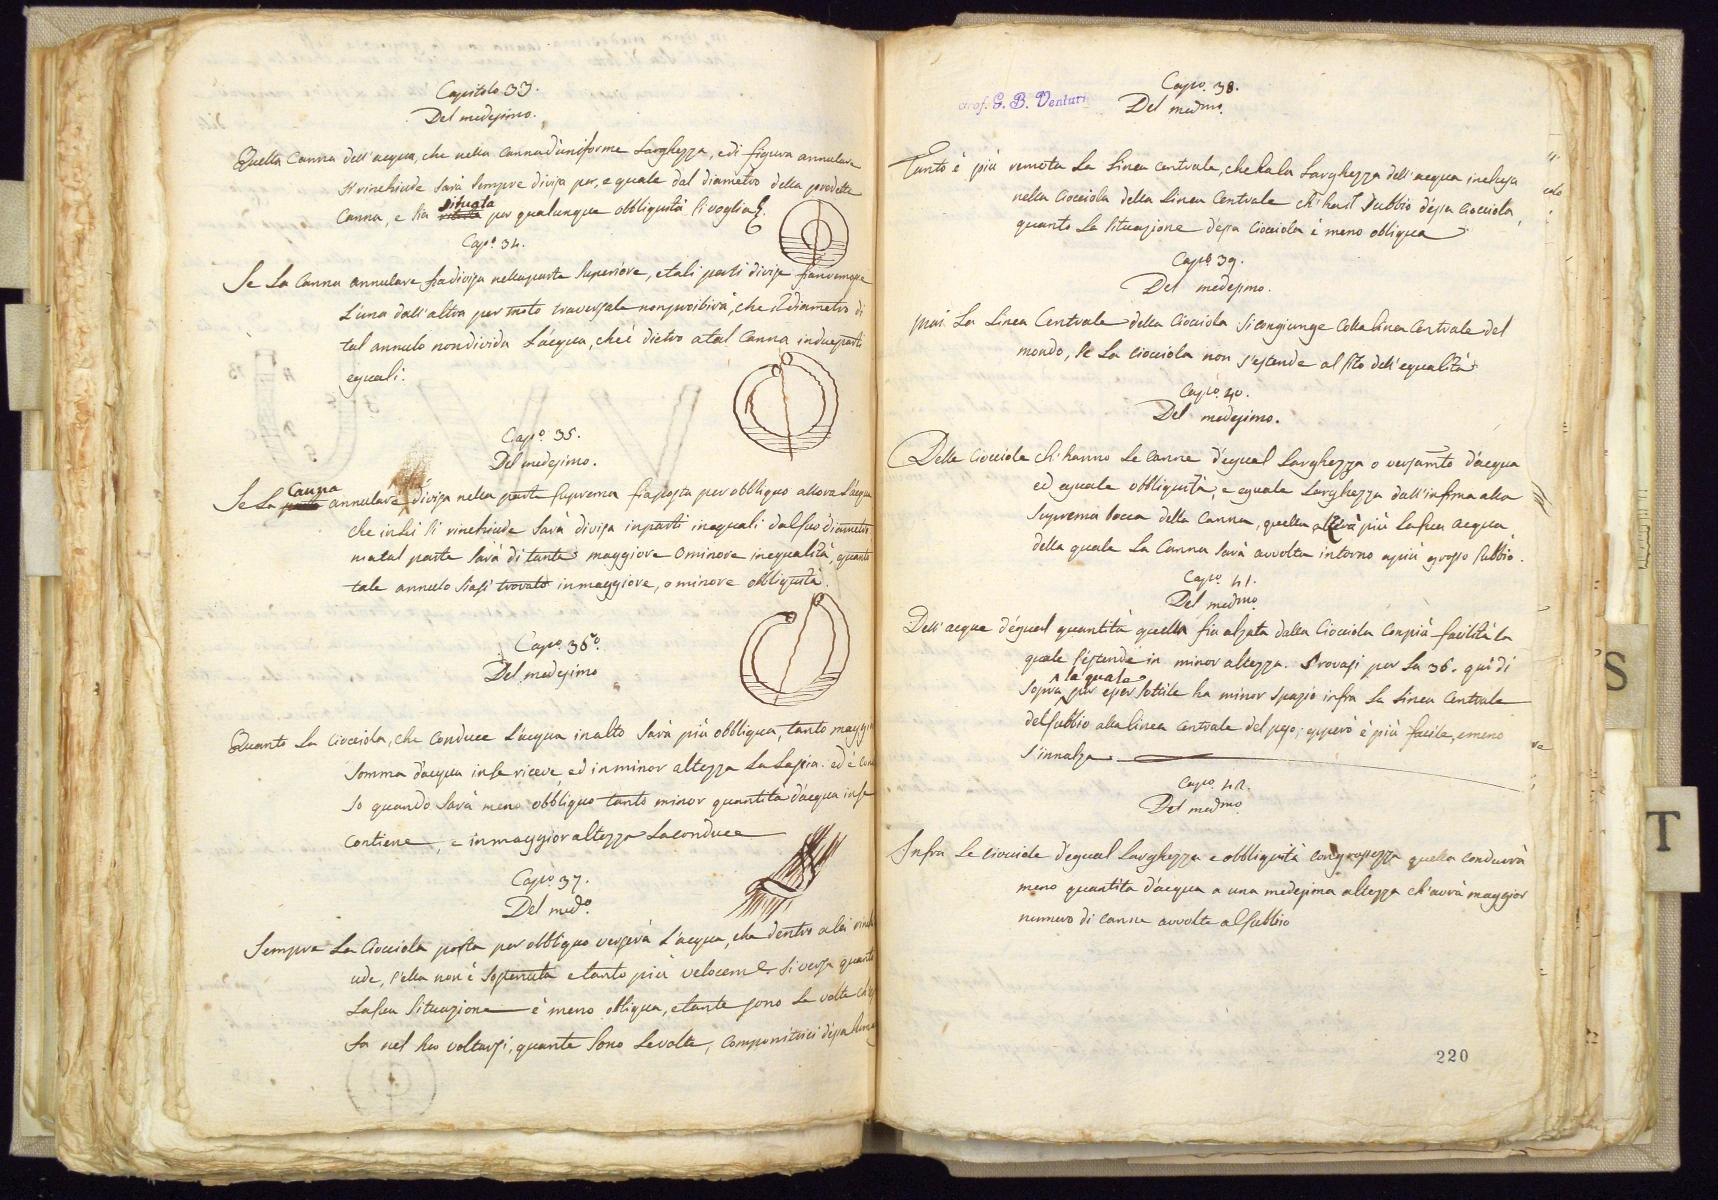 Capitolo 33.
Del medesimo.
Quella Canna dell'acqua, che nella canna d'uniforme Larghezza, e di figura annulare
si rinchiude sarà sempre divisa per, e quale dal diametro della predetta
situata
Canna, e sia per qualunque obbliquità si voglia.
Capo. 34.
Se La Canna annulare sia divisa nella parte superiore, e tali parti divise sian remosse
L'una dall'altra per moto traversale non proibirà, che il diametro di
tal annulo non divida L'acqua, ch'è dietro a tal Canna in due parti
eguali.
Capo. 35.
Del medesimo.
Canna
Se La parte annulare divisa nella parte suprema sia posta per obbliquo allora L'acqua
che in lei si rinchiude sarà divisa in parti inequali dal suo diametro
ma tal parte sarà di tanta maggiore o minore inequalità, quanto
tale annulo siasi trovato in maggiore, o minore obbliquità.
Capo. 36.
Del medesimo
Quanto La Ciocciola, che conduce L'acqua in alto sarà più obbliqua, tanto maggi
somma d'acqua in se riceve, ed in minor altezza La Lascia: ed è con
so quando sarà meno obbliquo tanto minor quantità d'acqua in se
contiene, e in maggior altezza La conduce
Capo. 37.
Del medo.
Sempre La Ciocciola posta per obbliquo verserà L'acqua, che dentro a lei rinchi
ude, s'ella non è sostenuta e tanto più velocem.e si versa quanto
La sua situazione è meno obliqua, e tante sono Le volte ch'es
sa nel suo voltarsi, quante sono Le volte, componitrici d'essa
prof. G. B. Venturi
Capo. 38.
Del medmo.
Tanto è più remota La Linea centrale, che ha la Larghezza dell'acqua inclusa
nella Ciocciola della Linea Centrale ch'ha il subbio d'essa Ciocciola,
quanto La situazione d'essa Ciocciola è meno obliqua
Capo. 39.
Del medesimo.
Mai La Linea Centrale della Ciocciola si congiunge colla Linea Centrale del
mondo, se La Ciocciola non s'estende al sito dell'equalità
Capo. 40.
Del medesimo.
Delle Ciocciole ch'hanno Le canne d'equal Larghezza o versamto d'acqua
ed eguale obbliquità, e eguale Larghezza dall'infima alla
suprema bocca della Canna, quella alzerà più La sua acqua
della quale La Canna sarà avvolta intorno a più grosso subbio.
Capo. 41.
Del medmo.
Dell'acque d'egual quantità quella fia alzata dalla Ciocciola con più facilità la
quale s'estende in minor altezza. Provasi per La 36. qui di
la quale
sopra per esser sottile ha minor spazio infra La Linea Centrale
del subbio alla linea centrale del peso; epperò è più facile, e meno
s'innalza.
Capo. 42.
Del medmo.
Infra Le ciocciole d'equal Larghezza e obbliquità con grossezza quella condurrà
meno quantità d'acqua a una medesima altezza ch'avrà maggior
numero di canne avvolte al subbio
220
S
T